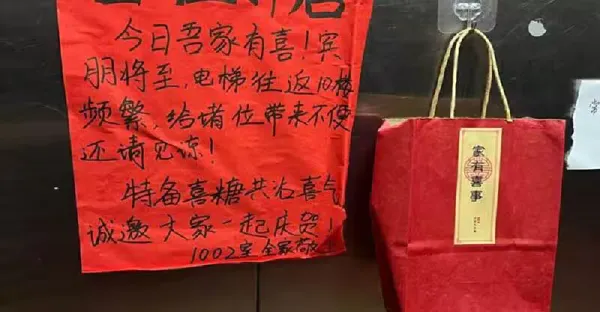 今日吾家有喜!宾
朋将至,电梯往返10楼
频繁,给堵位带来不便
还请见谅!
特备喜糖共沾喜气
诚邀大家一起庆贺!
1002室 全家敬上
家有喜事